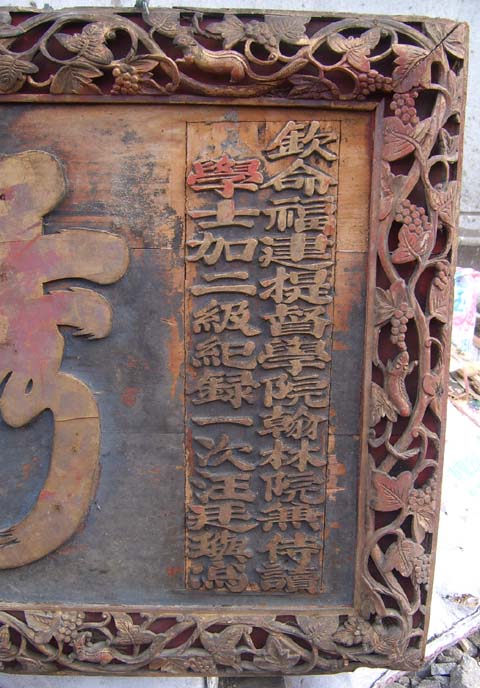 欽命福建提督學院翰林院兼侍讀
學士加二級紀錄一次汪廷璵為